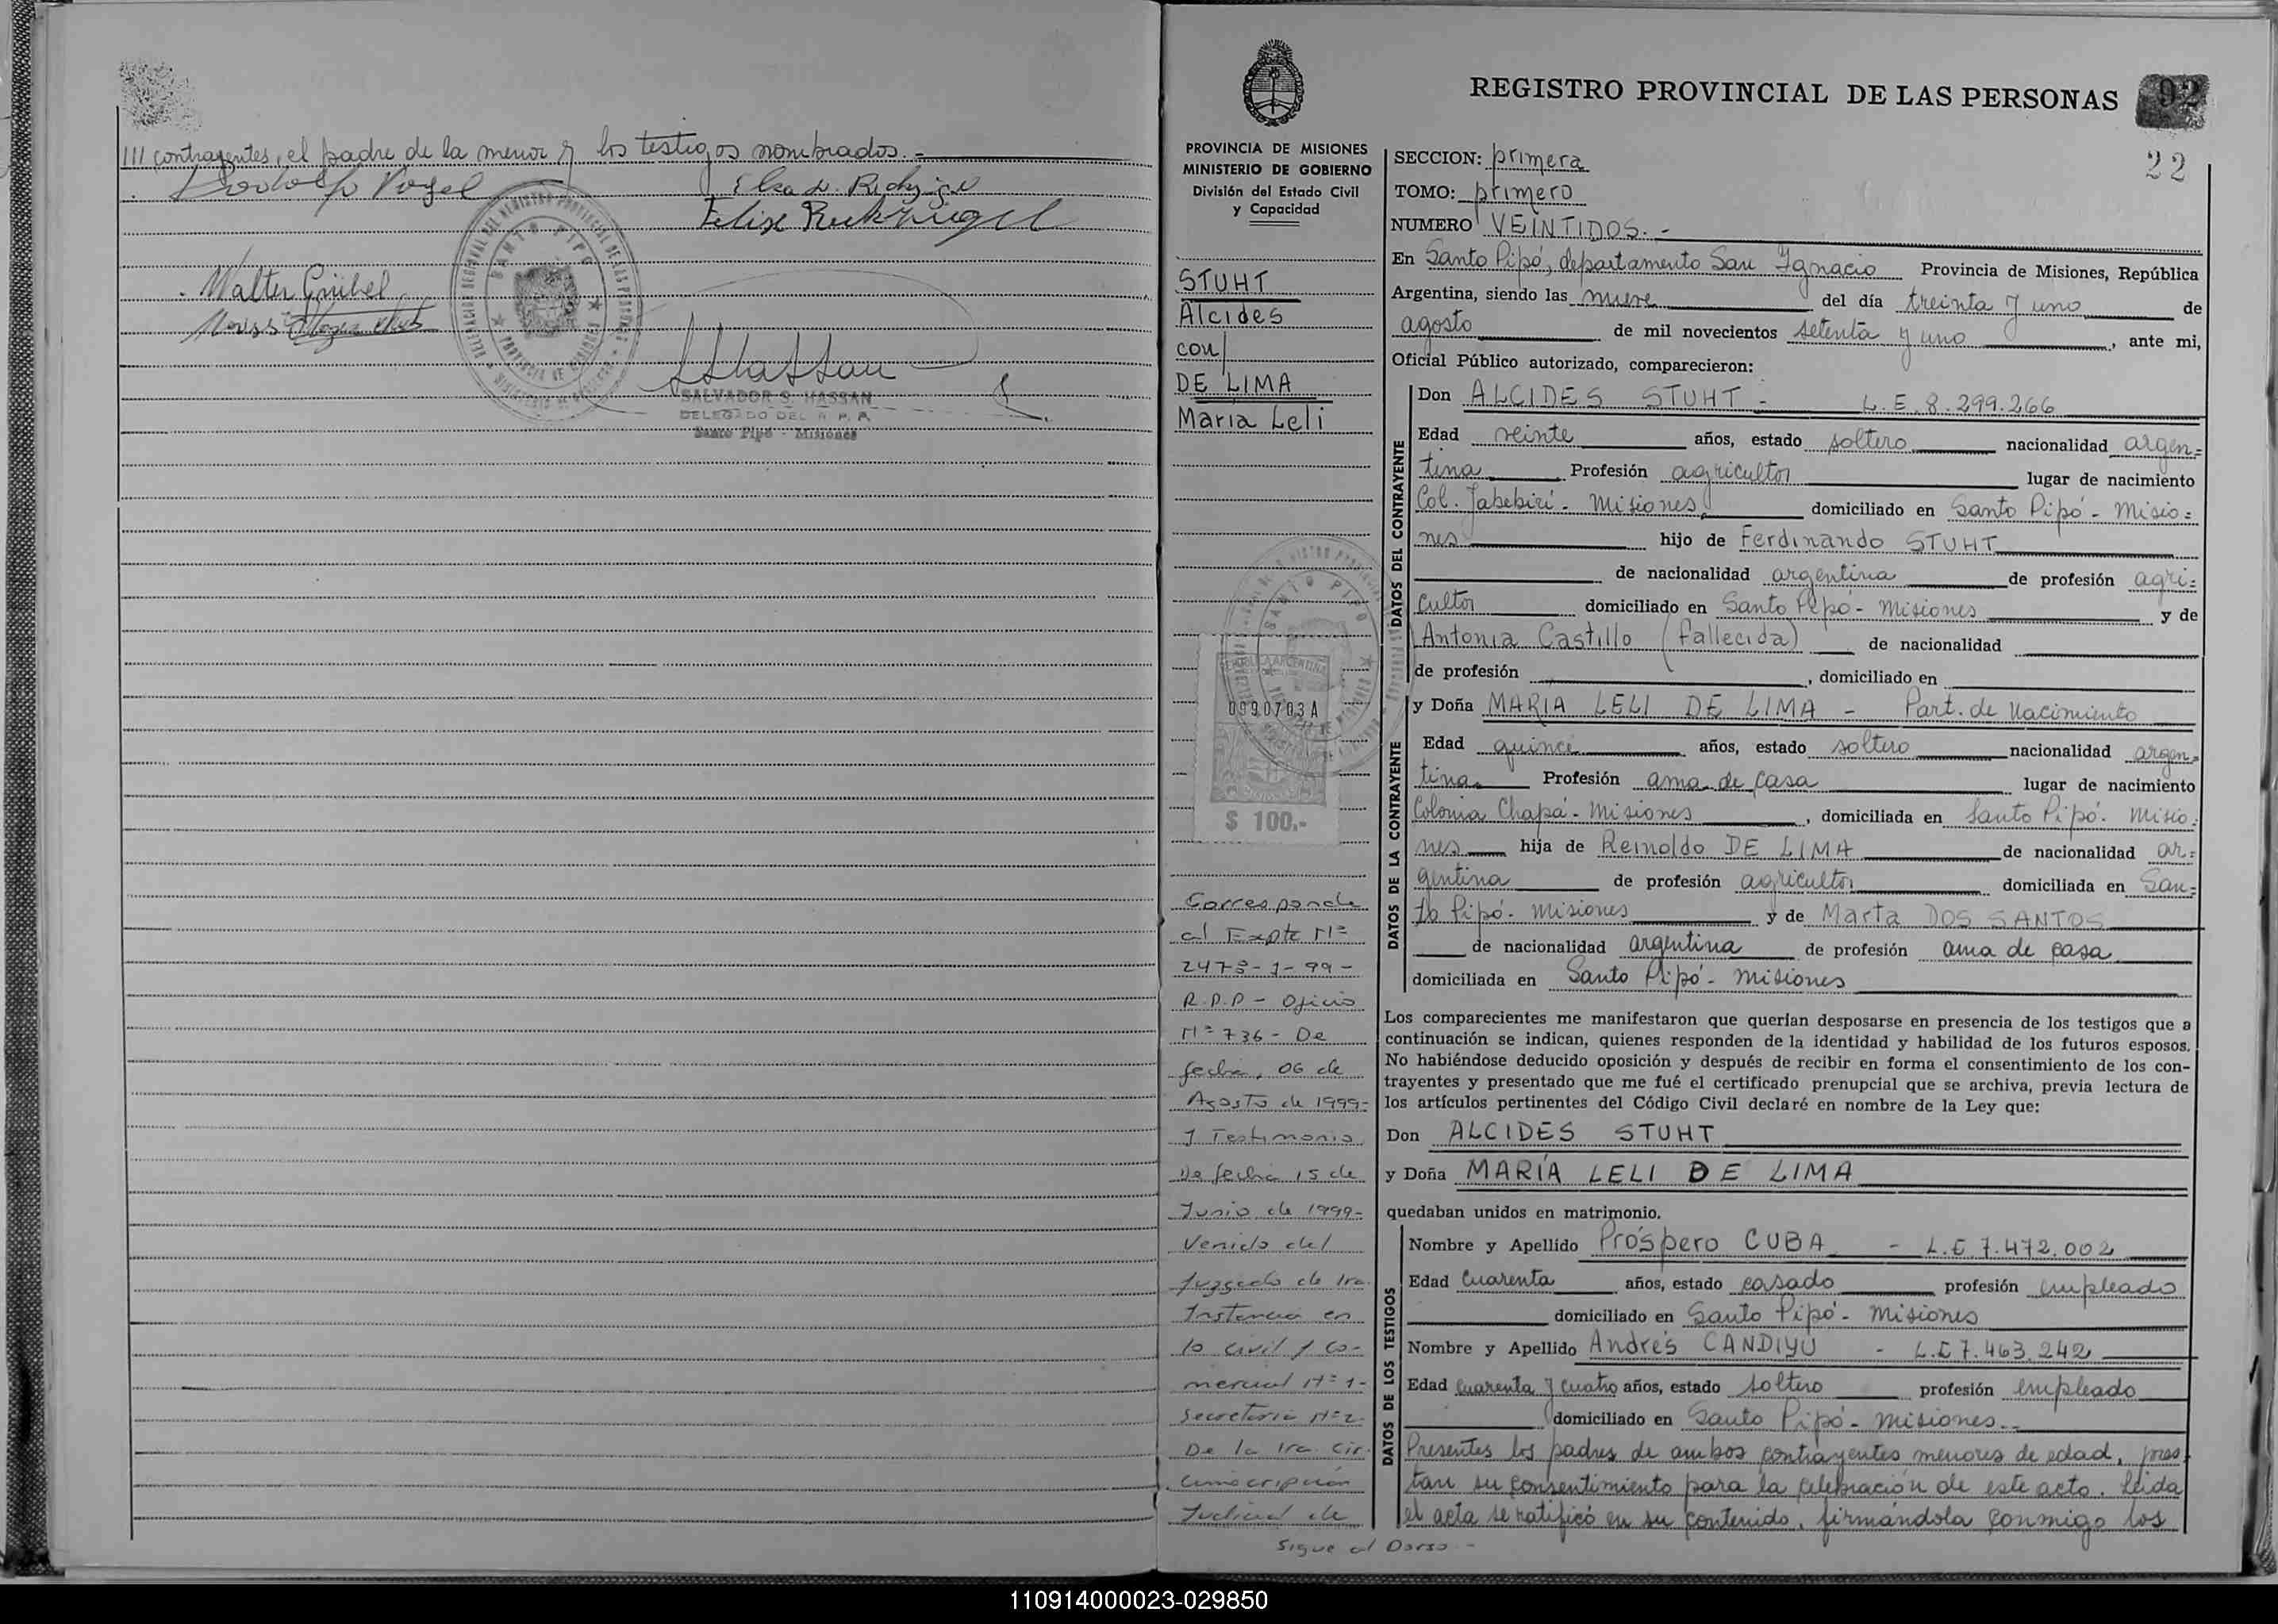 III contrayentes, el padre de la menor y los testigos nombrados. =
Rodolfo Vogel
Walter Grübel
SANTO PIPO
SALVADOR S. HASSAN
DELEGADO DEL R. P. P.
Santo Pipó - Misiones
REGISTRO PROVINCIAL DE LAS PERSONAS
92
22
PROVINCIA DE MISIONES
MINISTERIO DE GOBIERNO
División del Estado Civil
y Capacidad
STUHT
Alcides
con
DE LIMA
María Leli
SANTO PIPO
REPUBLICA ARGENTINA
0990703A
MISIONES
$ 100.-
Corresponde
al Expte Nº
2478-1-99-
R.P.P - Oficio
Nº 736 - De
fecha, 06 de
Agosto de 1999-
y Testimonio
De fecha 15 de
Junio de 1999-
Venido del
Juzgado de 1ra.
Instancia en
lo civil y Co-
mercial Nº 1-
Secretaria Nº 2.
De la 1ra. Cir-
cunscripción
Judicial de
Sigue al Dorso -
SECCION: primera
TOMO: primero
NUMERO VEINTIDOS. -
En Santo Pipó, departamento San Ignacio Provincia de Misiones, República
Argentina, siendo las nueve del día treinta y uno de
agosto de mil novecientos setenta y uno, ante mi,
Oficial Público autorizado, comparecieron:
DATOS DEL CONTRAYENTE
Don ALCIDES STUHT - L.E. 8.299.266
Edad veinte años, estado soltero nacionalidad argen=
tina Profesión agricultor lugar de nacimiento
Col. Jabebirí - Misiones domiciliado en Santo Pipó - Misio=
nes hijo de Ferdinando STUHT
de nacionalidad argentina de profesión agri=
cultor domiciliado en Santo Pipó - Misiones y de
Antonia Castillo (fallecida) de nacionalidad
de profesión , domiciliado en
DATOS DE LA CONTRAYENTE
y Doña MARIA LELI DE LIMA - Part. de Nacimiento
Edad quince años, estado soltero nacionalidad argen=
tina Profesión ama de casa lugar de nacimiento
Colonia Chapá - Misiones, domiciliada en Santo Pipó - Misio=
nes hija de Reinoldo DE LIMA de nacionalidad ar=
gentina de profesión agricultor domiciliada en San=
to Pipó - Misiones y de Marta DOS SANTOS
de nacionalidad argentina de profesión ama de casa
domiciliada en Santo Pipó - Misiones
Los comparecientes me manifestaron que querían desposarse en presencia de los testigos que a
continuación se indican, quienes responden de la identidad y habilidad de los futuros esposos.
No habiéndose deducido oposición y después de recibir en forma el consentimiento de los con-
trayentes y presentado que me fué el certificado prenupcial que se archiva, previa lectura de
los artículos pertinentes del Código Civil declaré en nombre de la Ley que:
Don ALCIDES STUHT
y Doña MARÍA LELI DE LIMA
quedaban unidos en matrimonio.
DATOS DE LOS TESTIGOS
Nombre y Apellido Próspero CUBA - L.E 7.472.002
Edad Cuarenta años, estado casado profesión empleado
domiciliado en Santo Pipó - Misiones
Nombre y Apellido Andrés CANDIYÚ - L.E 7.463.242
Edad cuarenta y cuatro años, estado soltero profesión empleado
domiciliado en Santo Pipó - Misiones.
Presentes los padres de ambos contrayentes menores de edad, pres
tan su consentimiento para la celebración de este acto. Leida
el acta se ratificó en su contenido, firmándola conmigo los
110914000023-029850